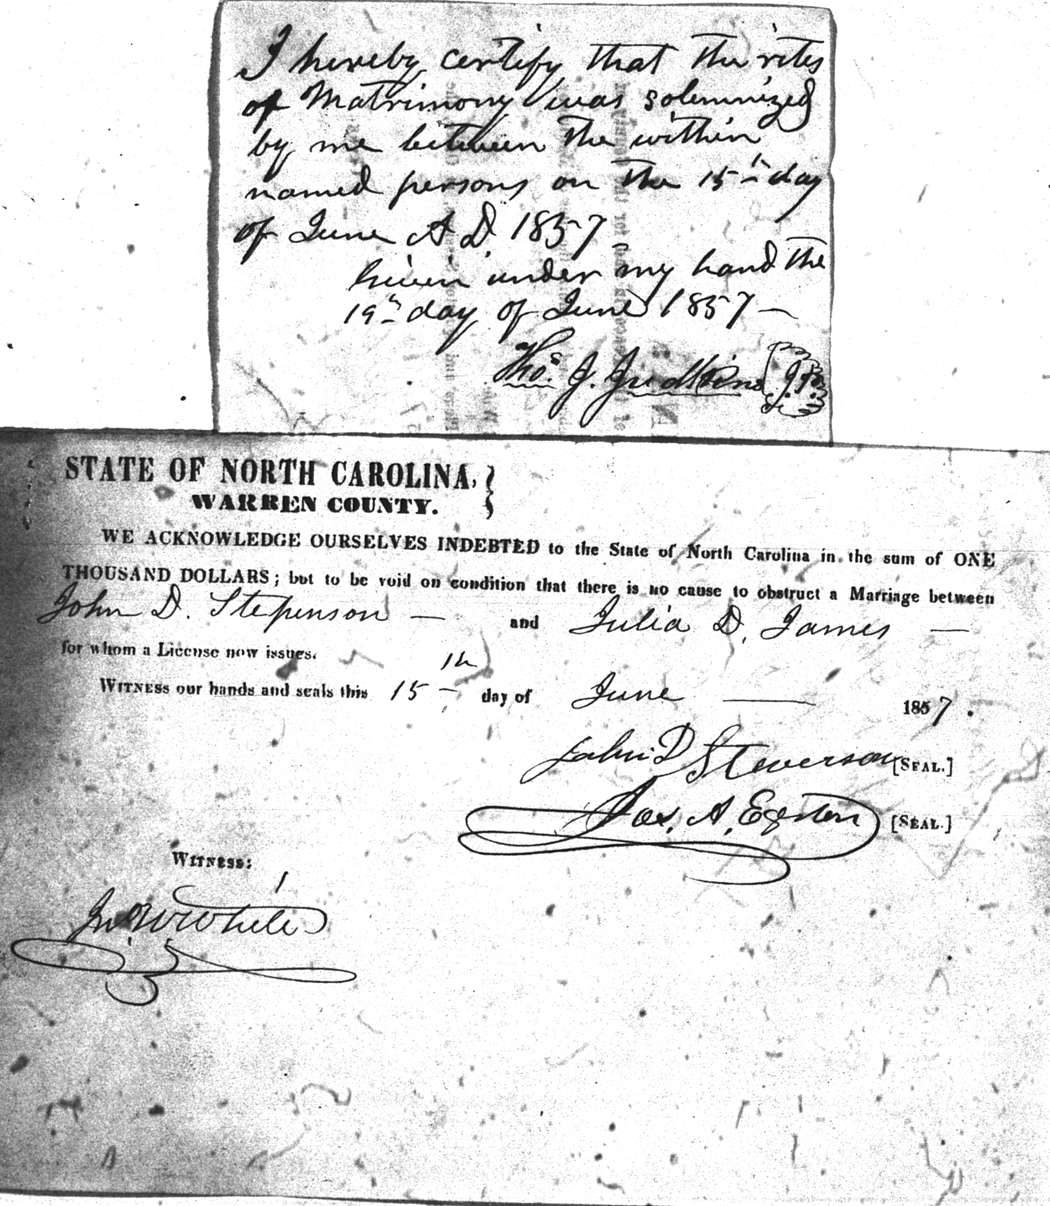 I hereby certify that the rites
of Matrimony was solemnized
by me between the within
named persons on the 15th day
of June A D 1857
Given under my hand the
19th day of June 1857 —
Thos. J. Judkins J.P.
STATE OF NORTH CAROLINA,
WARREN COUNTY.
WE ACKNOWLEDGE OURSELVES INDEBTED to the State of North Carolina in the sum of ONE
THOUSAND DOLLARS; but to be void on condition that there is no cause to obstruct a Marriage between
John D. Stepenson — and Julia D. James —
for whom a License now issues.
WITNESS our hands and seals this 15th day of June — 1857.
John D Steverson [SEAL.]
Jos. A. Egerton [SEAL.]
WITNESS:
Jno W White